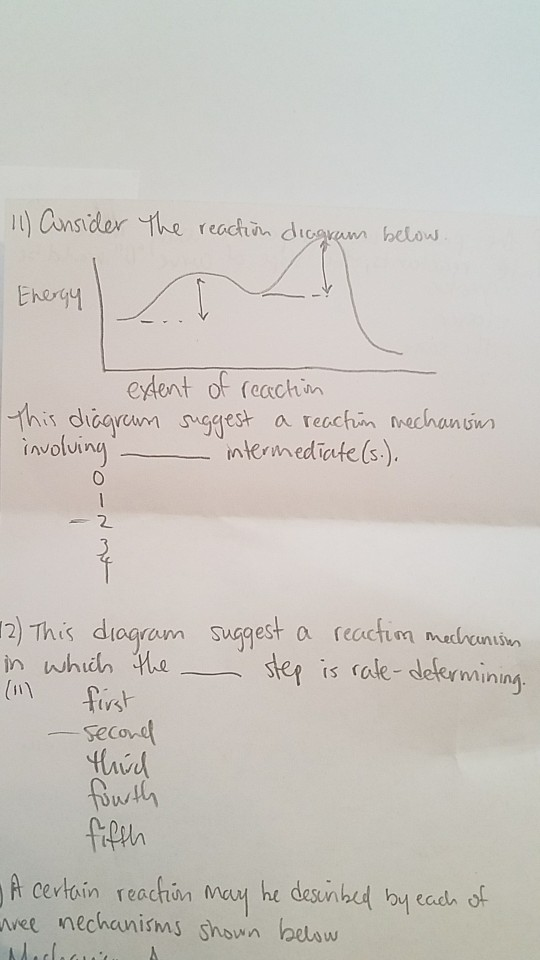 11) Consider the reaction diagram below.
Energy
extent of reaction
This diagram suggest a reaction mechanism
involving ______ intermediate(s.).
0
1
- 2
3
4
12) This diagram suggest a reaction mechanism
in which the ____ step is rate-determining.
(11)
first
- second
third
fourth
fifth
) A certain reaction may be described by each of
three mechanisms shown below
Mechanism A